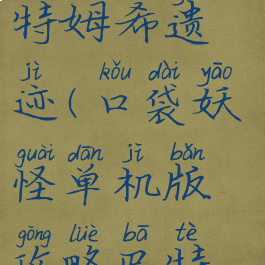 特姆希遗
jì kǒu dài yāo
迹(口袋妖
guài dān jī bǎn
怪单机版
gōng lüè bā tè
攻略巴特